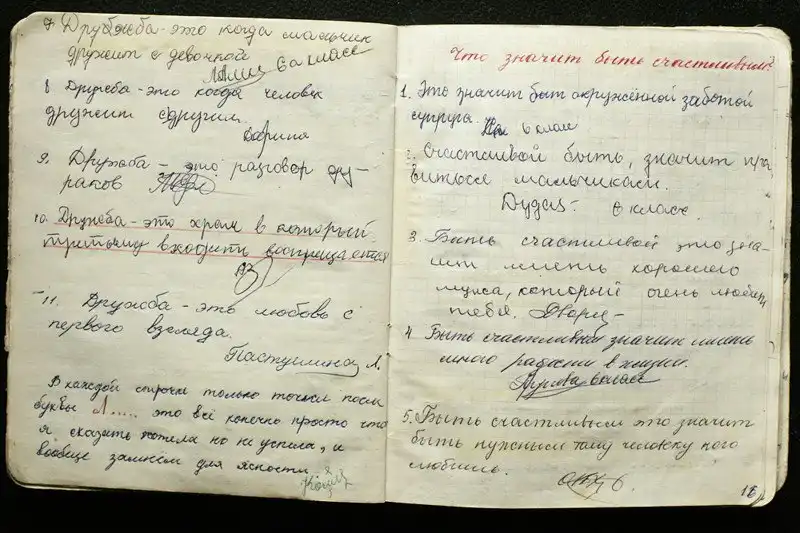 7. Дружба - это когда мальчик
дружит с девочкой
6а класс
8 Дружба - это когда человек
дружит сдругим.
9. Дружба - это разговор ду-
раков
10. Дружба - это храм в который
третьему входить воспрещается
11. Дружба - это любовь с
первого взгляда.
Пастушина Л.
В каждой строчке только точки после
буквы Л..... это всё конечно просто что
я сказать хотела но не успела, и
вообще замнём для ясности
Что значит быть счастливым?
1. Это значит быт окружённой заботой
супруга. 6 класс
2. Счастливой быть, значит нра
виться мальчикам.
6 класс.
3. Быть счастливой это зна-
чит иметь хорошего
мужа, который очень любит
тебя.
4 Быть счастливой значит иметь
много радости в жизни.
5. Быть счастливым это значит
быть нужным тому человеку кого
любишь.